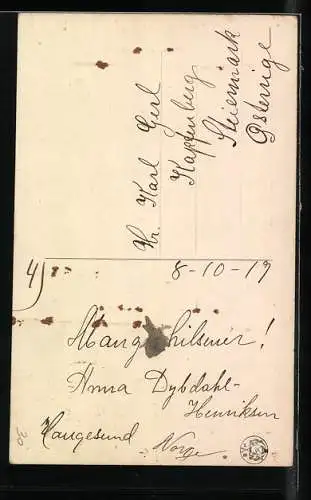 Hr. Karl Gerl
Kapfenberg
Steiermark
Østerrige
4)
8-10-19
Mange hilsener!
Anna Dybdahl-
Henriksen
Haugesund
Norge
20